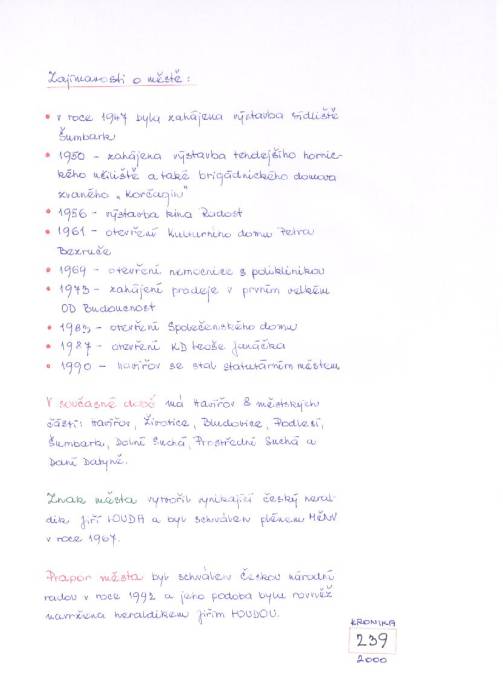 Zajímavosti o městě:
• v roce 1947 byla zahájena výstavba sídliště
Šumbark
• 1950 - zahájena výstavba tendejšího hornic-
kého učiliště a také brigádnického domova
zvaného „Korčagin"
• 1956 - výstavba kina Radost
• 1961 - otevření Kulturního domu Petra
Bezruče
• 1969 - otevření nemocnice s poliklinikou
• 1973 - zahájení prodeje v prvním velkém
OD Budoucnost
• 1985 - otevření Společenského domu
• 1987 - otevření KD Leoše Janáčka
• 1990 - Havířov se stal statutárním městem
V současné době má Havířov 8 městských
částí: Havířov, Životice, Bludovice, Podlesí,
Šumbark, Dolní Suchá, Prostřední Suchá a
Dolní Datyně.
Znak města vytvořil vynikající český heral-
dik Jiří LOUDA a byl schválen plénem MěNV
v roce 1967.
Prapor města byl schválen Českou národní
radou v roce 1992 a jeho podoba byla rovněž
navržena heraldikem Jiřím LOUDOU.
KRONIKA
239
2000